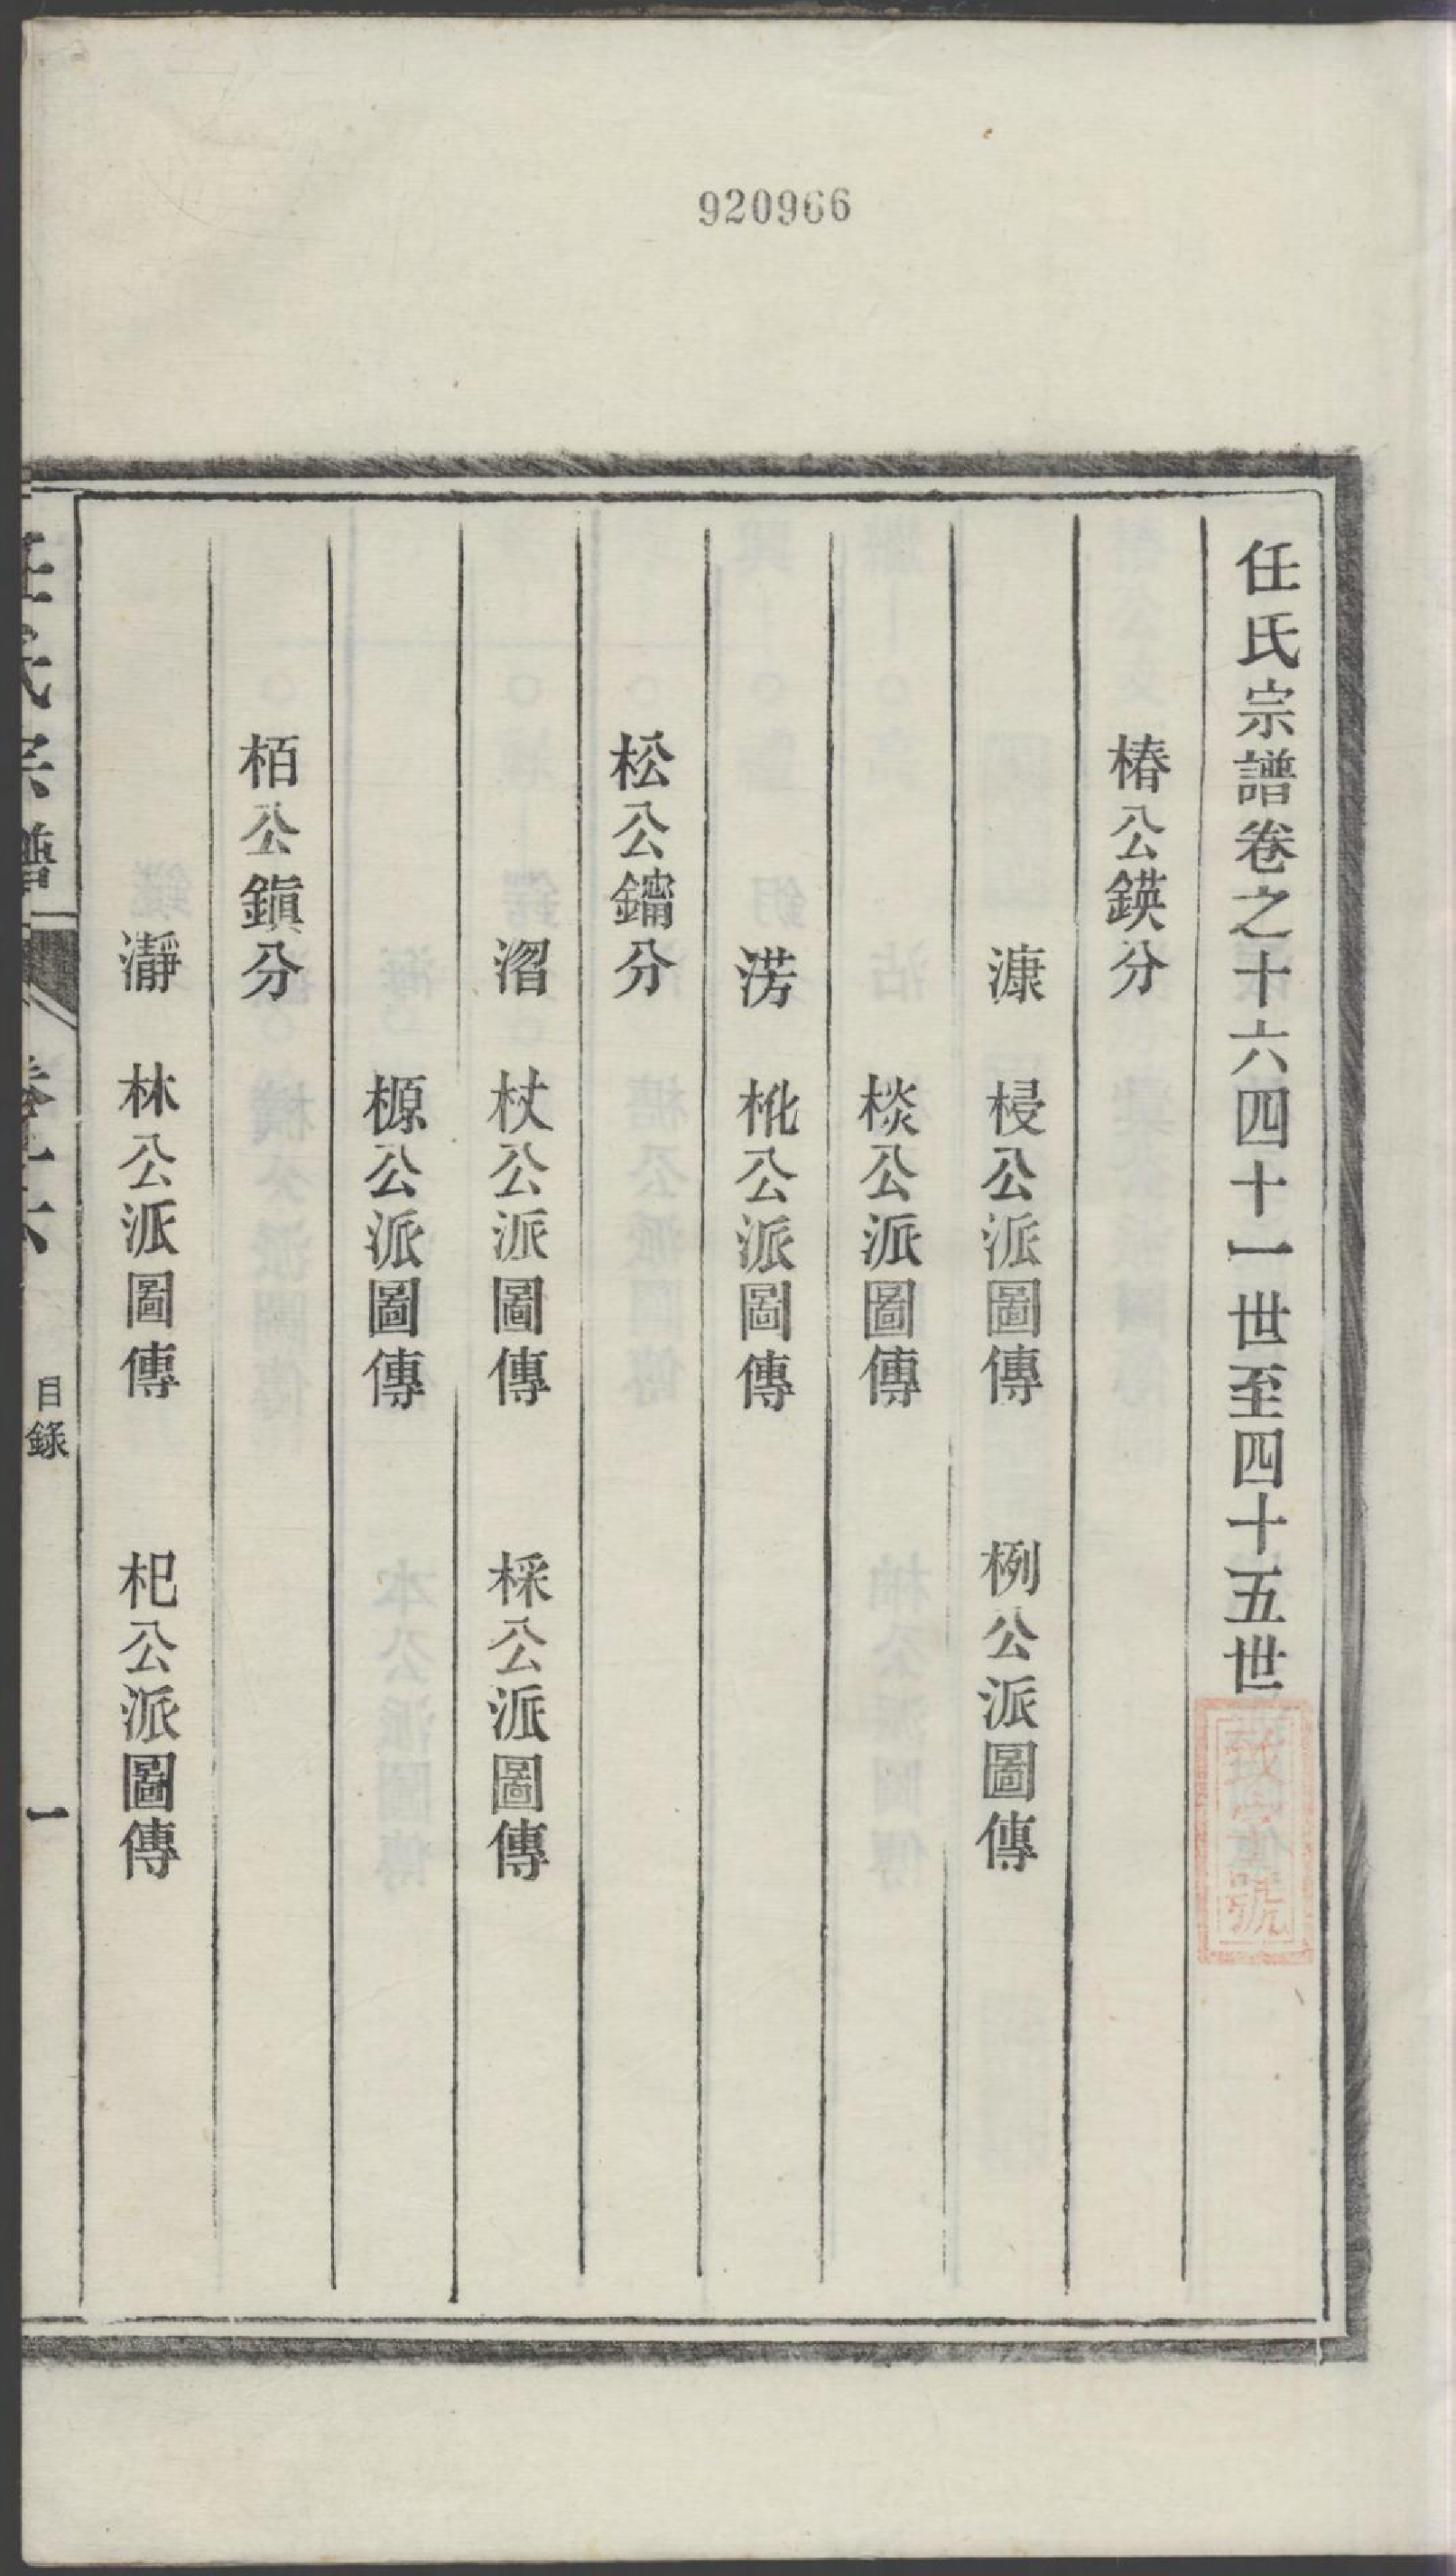 920966
任氏宗譜卷之十六四十一世至四十五世
椿公鍈分
漮 梫公派圖傳 栵公派圖傳
棪公派圖傳
淓 枇公派圖傳
松公鏞分
溜 杖公派圖傳 棌公派圖傳
榞公派圖傳
栢公鎭分
瀞 林公派圖傳 杞公派圖傳
任氏宗譜 卷十六 目錄 一